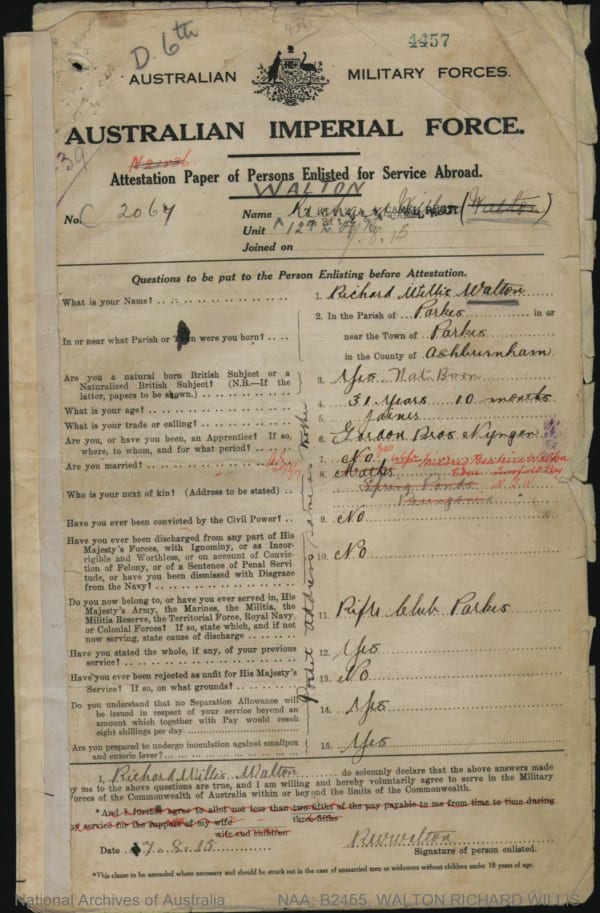 D. 6th
436
4457
AUSTRALIAN MILITARY FORCES.
AUSTRALIAN IMPERIAL FORCE.
39
Attestation Paper of Persons Enlisted for Service Abroad.
WALTON
No. C 2067
Name Richard Willis (Walton)
Unit
Joined on 7.8.15
Questions to be put to the Person Enlisting before Attestation.
What is your Name?
1. Richard Willis Walton
In or near what Parish or Town were you born?
2. In the Parish of Parkes in or
near the Town of Parkes
in the County of Ashburnham
Are you a natural born British Subject or a
Naturalized British Subject? (N.B.—If the
latter, papers to be shown.)
3. Yes Nat Born
What is your age?
4. 31 Years 10 months
What is your trade or calling?
5. Joiner
Are you, or have you been, an Apprentice? If so,
where, to whom, and for what period?
6. Gordon Bros Nyngan
Are you married?
7. No
Who is your next of kin? (Address to be stated)
8. Wife Walton
Eden Twofold Bay
N.S.W.
Have you ever been convicted by the Civil Power?
9. No
Have you ever been discharged from any part of His
Majesty's Forces, with Ignominy, or as Incor-
rigible and Worthless, or on account of Convic-
tion of Felony, or of a Sentence of Penal Servi-
tude, or have you been Dismissed with Disgrace
from the Navy?
10. No
Do you now belong to, or have you ever served in, His
Majesty's Army, the Marines, the Militia, the
Militia Reserve, the Territorial Force, Royal Navy,
or Colonial Forces? If so, state which, and if not
now serving, state cause of discharge
11. Rifle Club Parkes
Have you stated the whole, if any, of your previous
service?
12. Yes
Have you ever been rejected as unfit for His Majesty's
Service? If so, on what grounds?
13. No
Do you understand that no Separation Allowance will
be issued in respect of your service beyond an
amount which together with Pay would reach
eight shillings per day
14. Yes
Are you prepared to undergo inoculation against smallpox
and enteric fever?
15. Yes
Postal address same as Mother
I, Richard Willis Walton do solemnly declare that the above answers made
by me to the above questions are true, and I am willing and hereby voluntarily agree to serve in the Military
Forces of the Commonwealth of Australia within or beyond the limits of the Commonwealth.
*And I further agree to allot not less than two-fifths of the pay payable to me from time to time during
my service for the support of my wife
wife and children three-fifths
Date 7.8.15
RWWalton
Signature of person enlisted.
*This clause to be amended where necessary and should be struck out in the case of unmarried men or widowers without children under 18 years of age.
National Archives of Australia NAA: B2455, WALTON RICHARD WILLIS